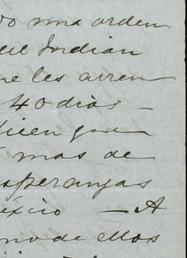 do una orden
que Indian
ue les arren
40 dias –
dicen que
mas de
speranzas
éxico – A
no de ellos